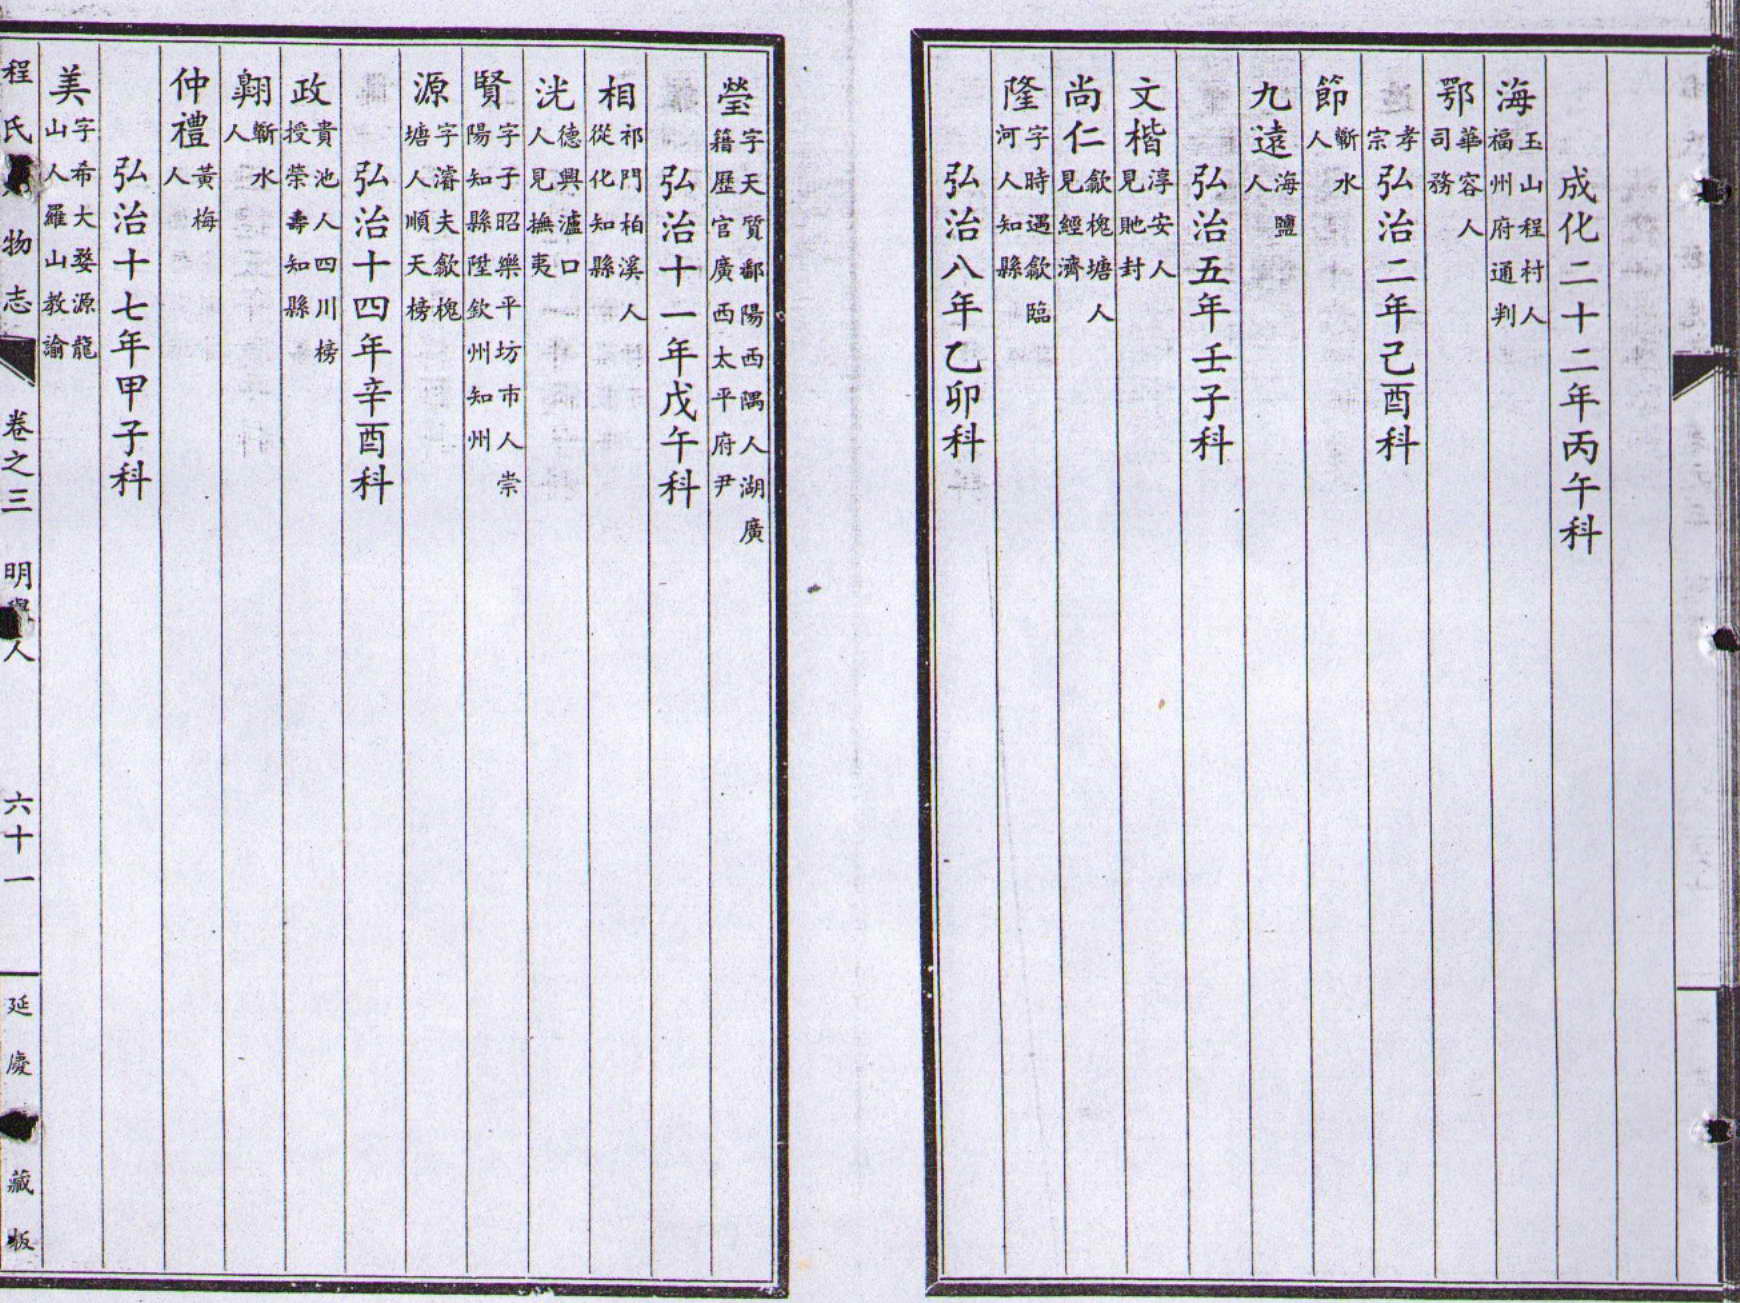 成化二十二年丙午科
海 玉山程村人福州府通判
鄂 華容人司務
孝宗弘治二年己酉科
節 蘄水人
九遠 海鹽人
弘治五年壬子科
文楷 淳安人見貤封
尚仁 歙槐塘人見經濟
隆 字時遇歙臨河人知縣
弘治八年乙卯科
瑩 字天質鄱陽西隅人湖廣籍歷官廣西太平府尹
弘治十一年戊午科
相 祁門柏溪人從化知縣
洸 德興瀘口人見撫夷
賢 字子昭樂平坊市人崇陽知縣陞欽州知州
源 字濬夫歙槐塘人順天榜
弘治十四年辛酉科
政 貴池人四川榜授榮壽知縣
翱 蘄水人
仲禮 黃梅人
弘治十七年甲子科
美 字希大婺源龍山人羅山教諭
程氏 物志 卷之三 明 人 六十一 延慶 藏板